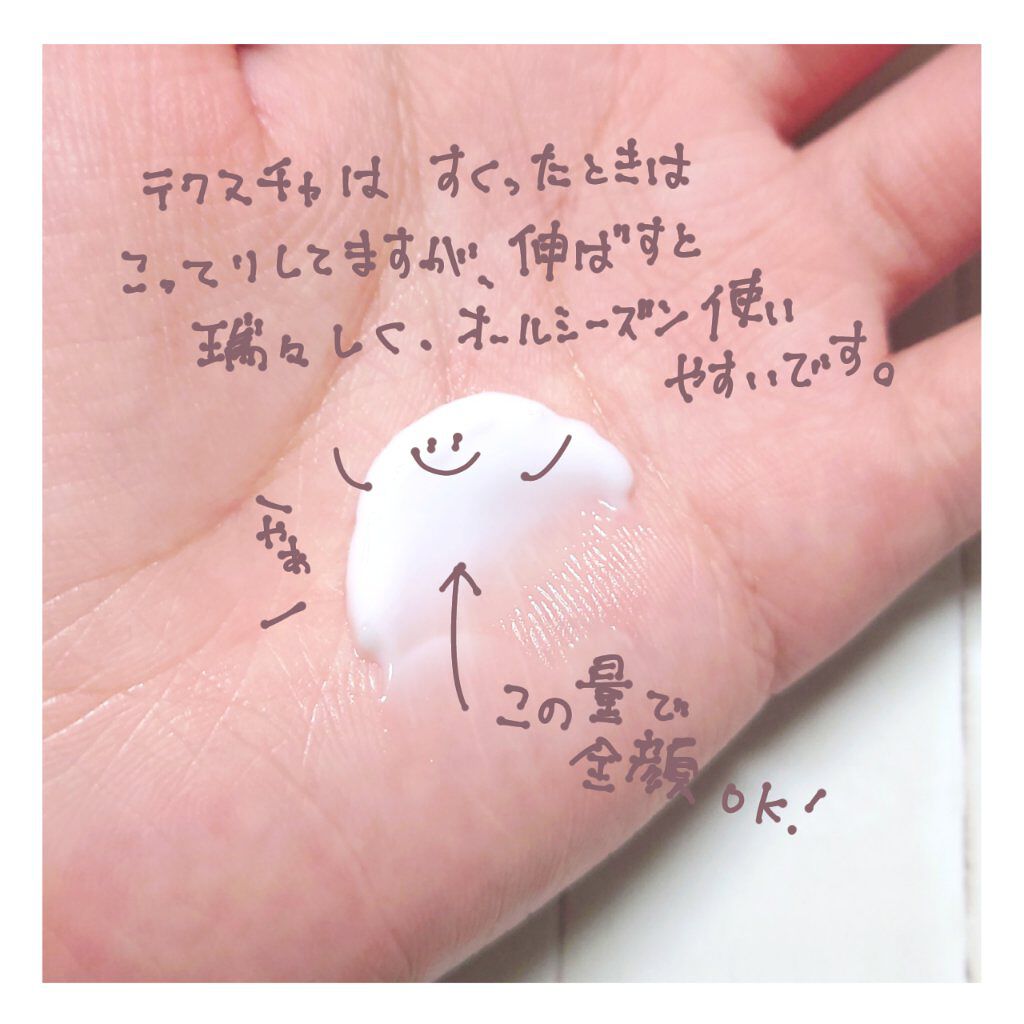 テクスチャは すくったときは
こってりしてますが、伸ばすと
瑞々しく、オールシーズン使い
やすいです。
やぁ
この量で
全顔 OK!